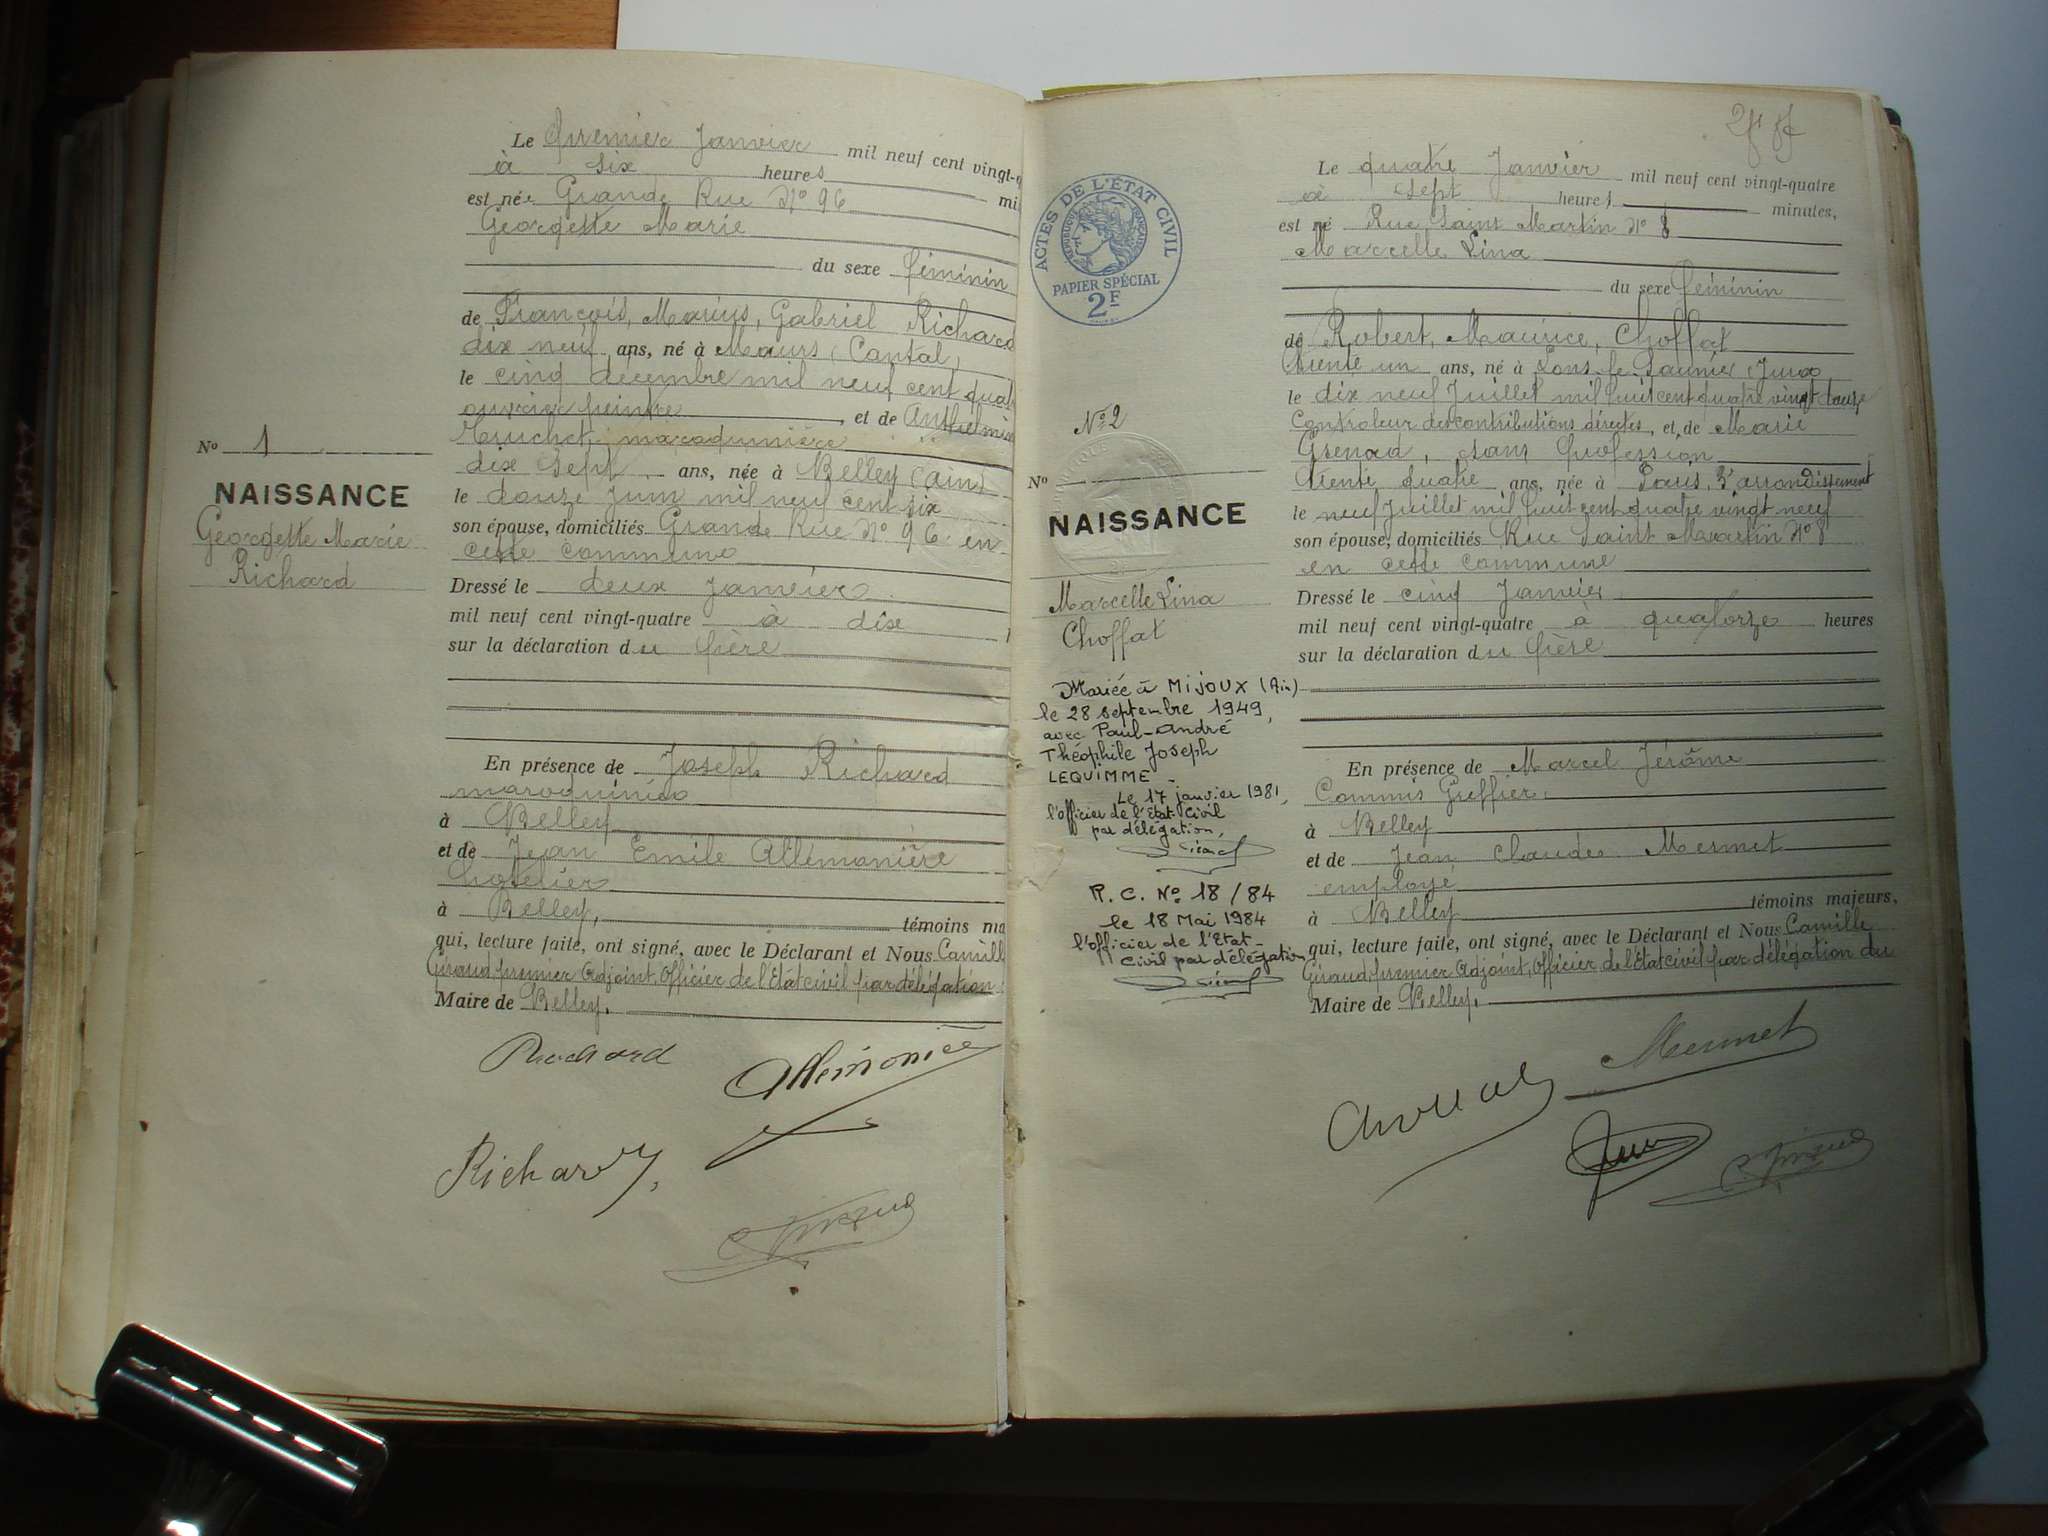 Le Premier Janvier mil neuf cent vingt-q
à six heures
est née Grande Rue N° 96 mi
Georgette Marie
du sexe féminin
de François, Marius, Gabriel Richard
dix neuf ans, né à Maurs (Cantal)
le cinq décembre mil neuf cent quat
ouvrier peintre, et de Anthelmine
maroquinière
dix sept ans, née à Belley (Ain)
le douze Juin mil neuf cent six
son épouse, domiciliés Grande Rue N° 96 en
cette commune
N° 1
NAISSANCE
Georgette Marie
Richard
Dressé le deux Janvier
mil neuf cent vingt-quatre à dix
sur la déclaration du père
En présence de Joseph Richard
à Belley
et de Jean Emile Allémonière
hotelier
à Belley, témoins ma
qui, lecture faite, ont signé, avec le Déclarant et Nous Camill
Giraud premier Adjoint, Officier de l'État civil par délégation
Maire de Belley.
Richard
Allémonière
Richard
C. Giraud
ACTES DE L'ÉTAT CIVIL
RÉPUBLIQUE FRANÇAISE
PAPIER SPÉCIAL
2F
N° 2
N°
NAISSANCE
Marcelle Lina
Choffat
Mariée à MIJOUX (Ain)
le 28 septembre 1949,
avec Paul-André
Théophile Joseph
LEQUIMME -
Le 17 janvier 1981,
l'officier de l'Etat-Civil
par délégation,
R. C. N° 18 / 84
le 18 Mai 1984
l'officier de l'Etat-
Civil par délégation
Le quatre Janvier mil neuf cent vingt-quatre
à sept heures minutes,
est né Rue Saint Martin N° 8
Marcelle Lina
du sexe féminin
de Robert, Maurice, Choffat
trente un ans, né à Lons le Saunier (Jura
le dix neuf Juillet mil huit cent quatre vingt douze
Controleur des contributions directes, et de Marie
Grenad, sans profession
trente quatre ans, née à Paris, arrondissement
le neuf Juillet mil huit cent quatre vingt neuf
son épouse, domiciliés Rue Saint Martin N° 8
en cette commune
Dressé le cinq Janvier
mil neuf cent vingt-quatre à quatorze heures
sur la déclaration du père
En présence de Marcel Jérôme
Commis Greffier
à Belley
et de Jean Claude Mermet
employé
à Belley témoins majeurs,
qui, lecture faite, ont signé, avec le Déclarant et Nous Camille
Giraud, premier Adjoint, Officier de l'État civil par délégation du
Maire de Belley.
Mermet
C. Giraud